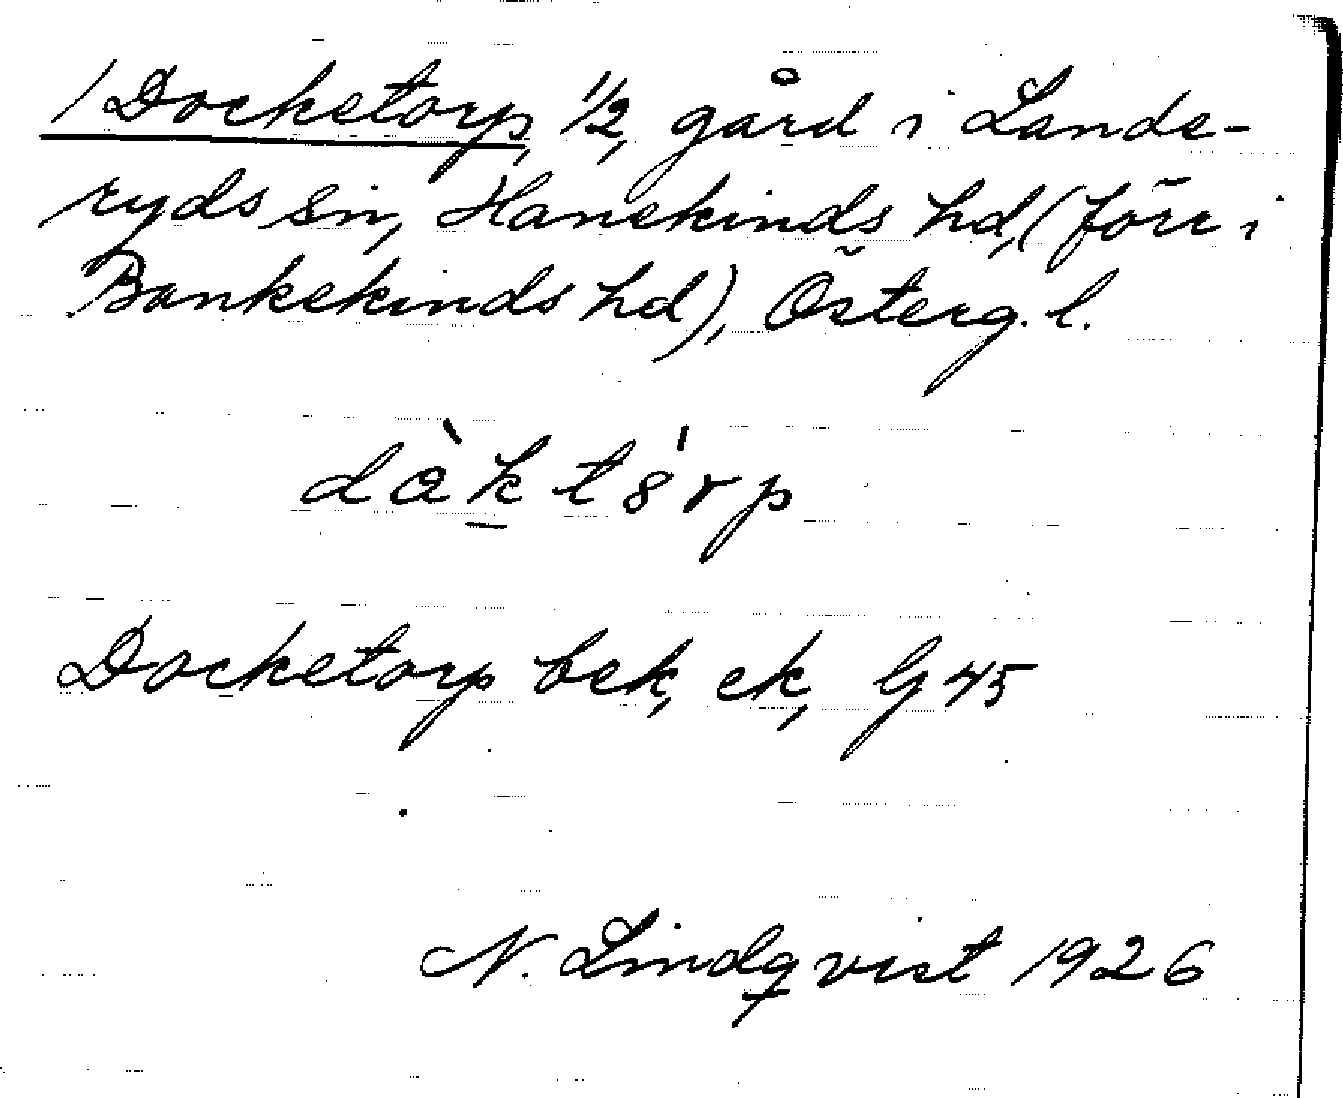 /Docketorp, 1/2, gård i Lande-
ryds sn, Hanekinds hd, (förr i
Bankekinds hd), Österg. l.
dàktórp
Docketorp bek, ek, G 45
N. Lindqvist 1926